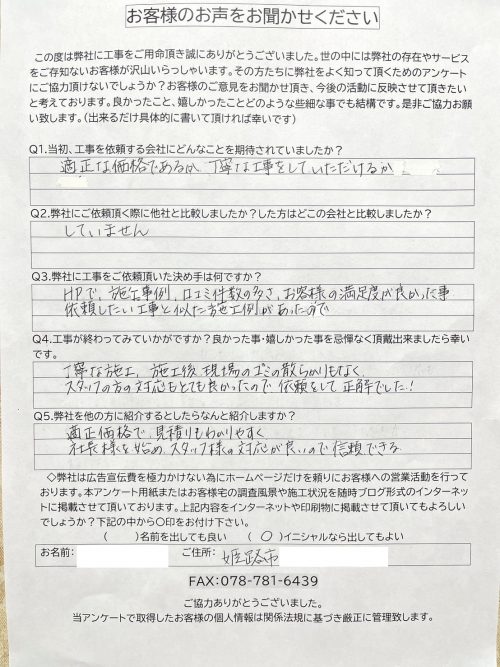 お客様のお声をお聞かせください
この度は弊社に工事をご用命頂き誠にありがとうございました。世の中には弊社の存在やサービス
をご存知ないお客様が沢山いらっしゃいます。その方たちに弊社をよく知って頂くためのアンケート
にご協力頂けないでしょうか？お客様のご意見をお聞かせ頂き、今後の活動に反映させて頂きたい
と考えております。良かったこと、嬉しかったことどのような些細な事でも結構です。是非ご協力お願
い致します。（出来るだけ具体的に書いて頂ければ幸いです）
Q1.当初、工事を依頼する会社にどんなことを期待されていましたか？
適正な価格であるか、丁寧な工事をしていただけるか
Q2.弊社にご依頼頂く際に他社と比較しましたか？した方はどこの会社と比較しましたか？
していません
Q3.弊社に工事をご依頼頂いた決め手は何ですか？
HPで、施工事例、口コミ件数の多さ、お客様の満足度が良かった事
依頼したい工事と似た施工例があったので
Q4.工事が終わってみていかがですか？良かった事・嬉しかった事を忌憚なく頂戴出来ましたら幸い
です。
丁寧な施工、施工後、現場のゴミの散らかりもなく、
スタッフの方の対応もとても良かったので、依頼をして正解でした!
Q5.弊社を他の方に紹介するとしたらなんと紹介しますか？
適正価格で、見積りもわかりやすく
社長様を始め、スタッフ様の対応が良いので信頼できる
◇弊社は広告宣伝費を極力かけない為にホームページだけを頼りにお客様への営業活動を行って
おります。本アンケート用紙またはお客様宅の調査風景や施工状況を随時ブログ形式のインターネッ
トに掲載させて頂いております。上記内容をインターネットや印刷物に掲載させて頂いてもよろしい
でしょうか？下記の中から〇印をお付け下さい。
（　　）名前を出しても良い　（ 〇 ）イニシャルなら出してもよい
お名前：　　ご住所：　姫路市
FAX:078-781-6439
ご協力ありがとうございました。
当アンケートで取得したお客様の個人情報は関係法規に基づき厳正に管理致します。